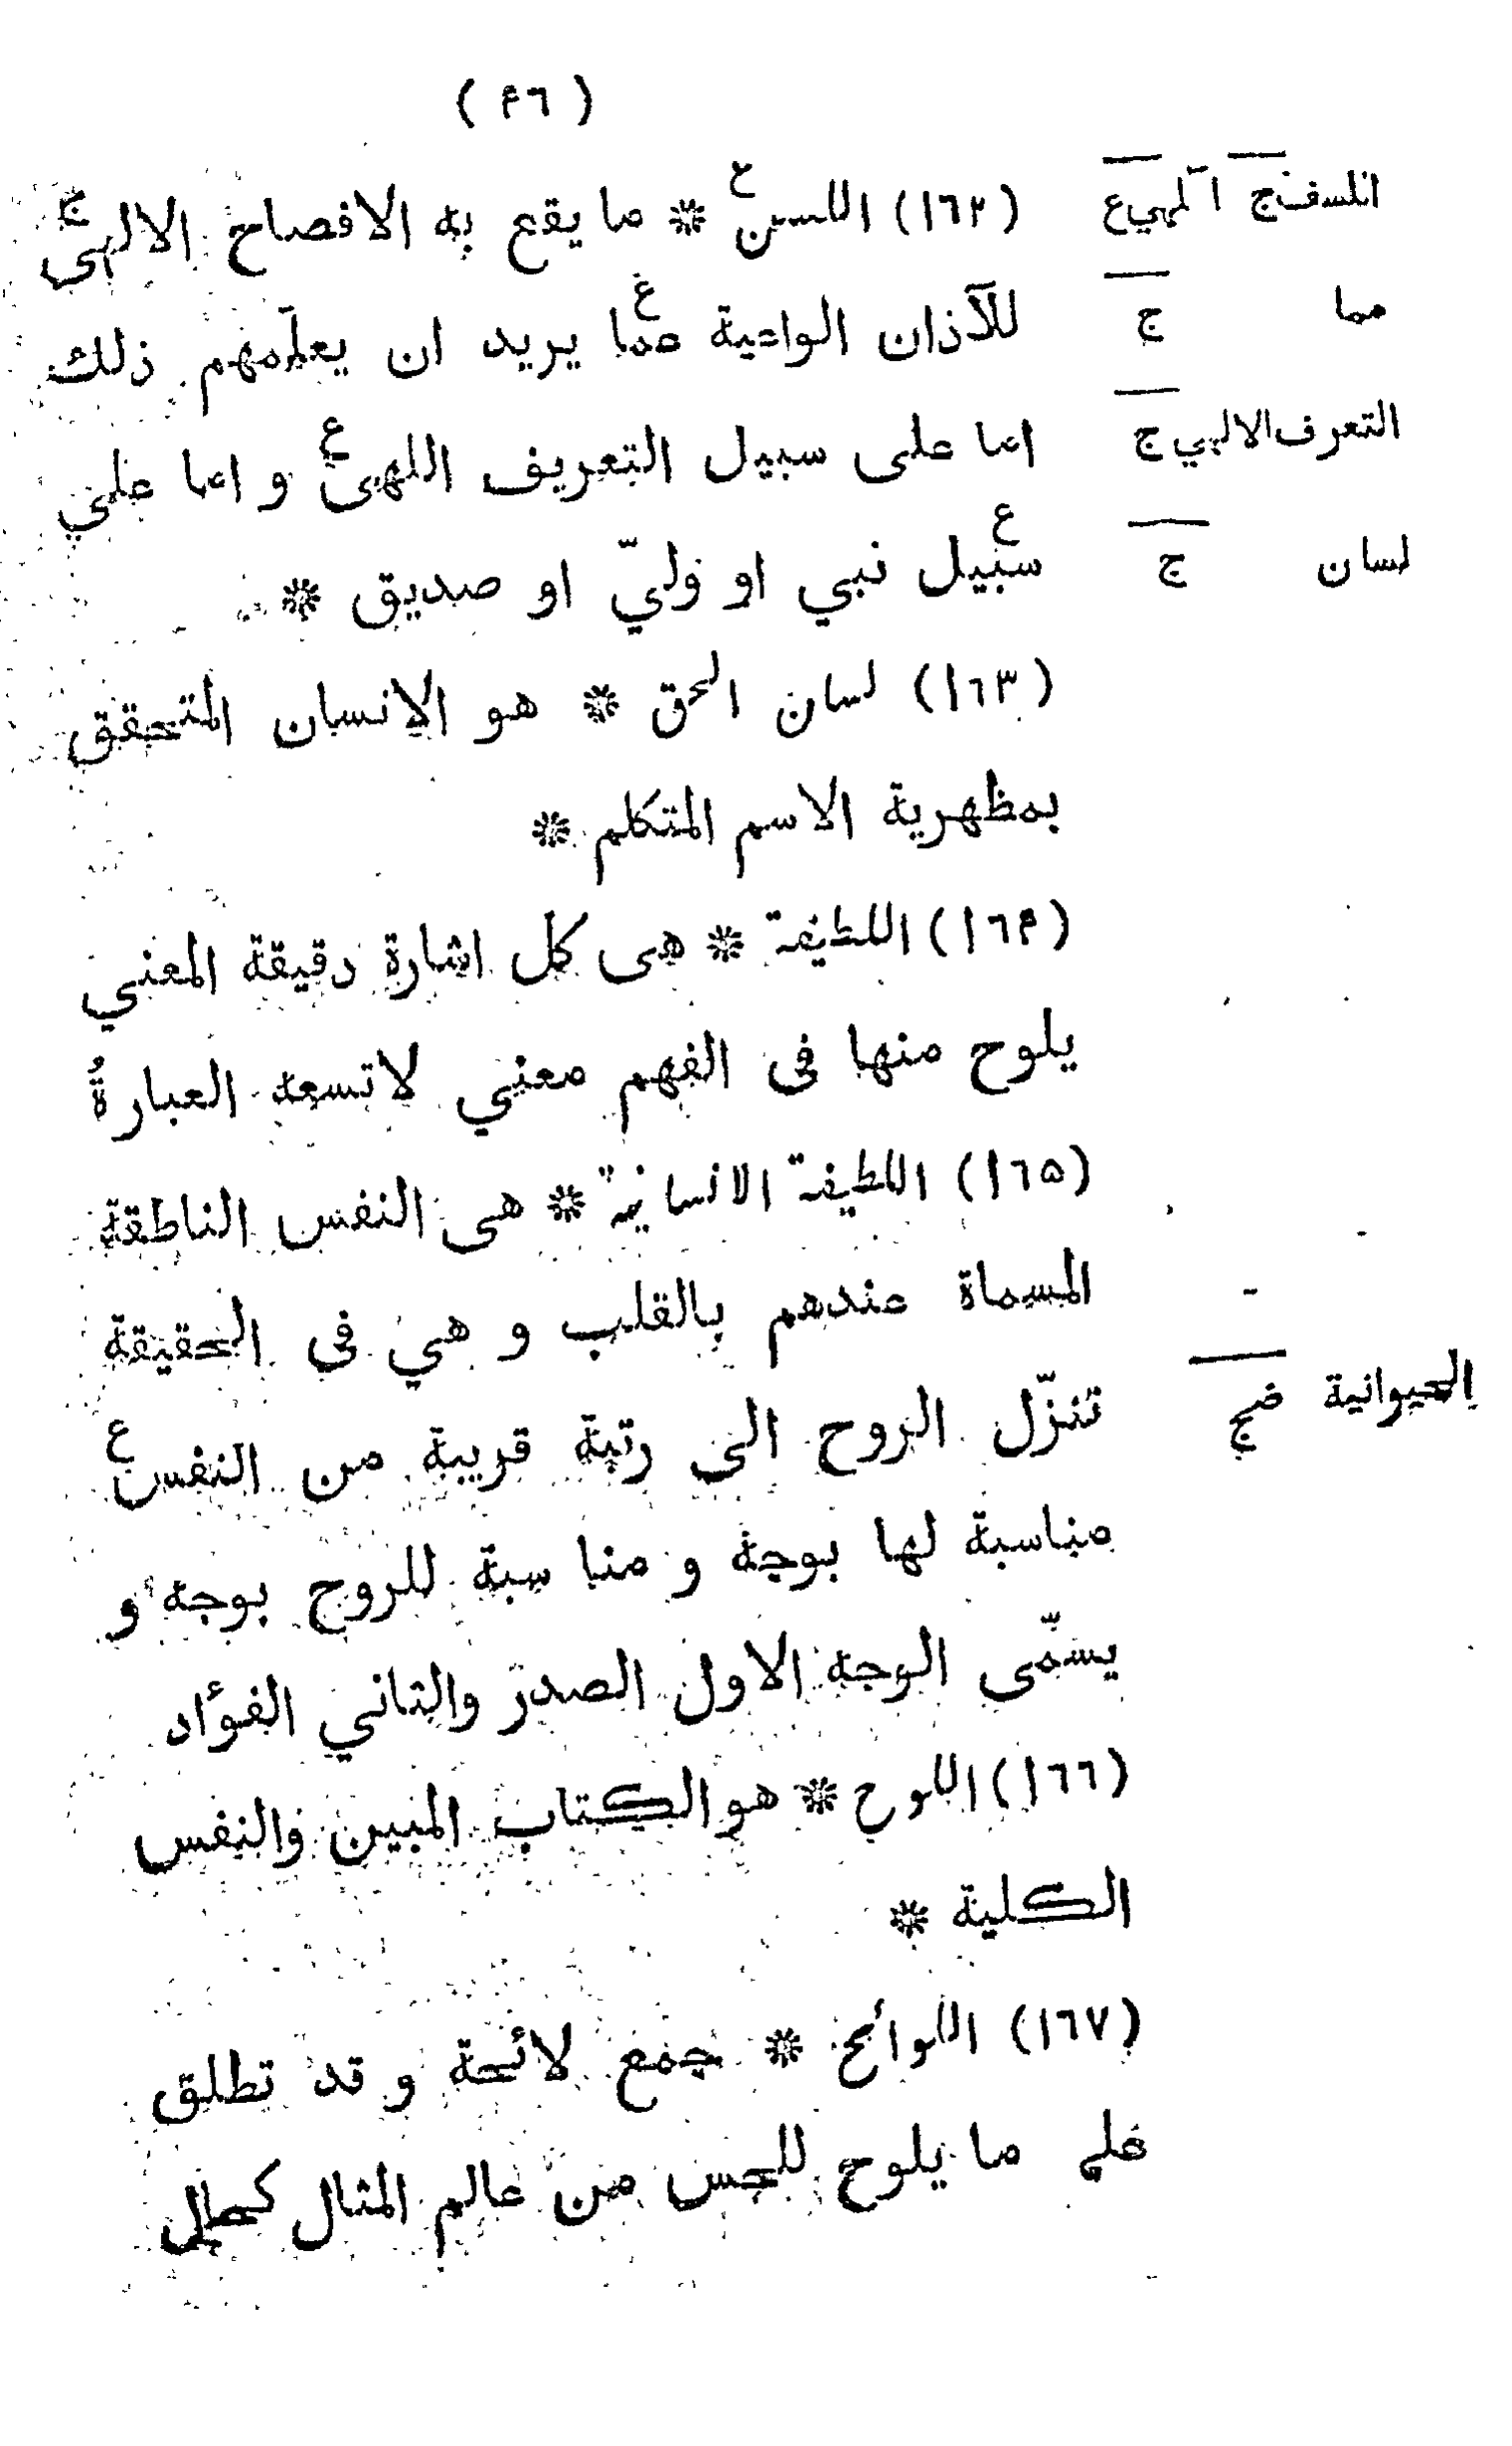 ( ۴٦ )
(١٦٢) اللسن ع * ما يقع به الافصاح الالهى ج
للآذان الواعية عما ع يريد ان يعلّمهم ذلك
اما على سبيل التعريف اللهى ع و اما علي
سبيل ع نبي او وليّ او صديق *
(١٦٣) لسان الحق * هو الانسان المتحقق
بمظهرية الاسم المتكلم *
(١٦۴) اللطيفة * هى كل اشارة دقيقة المعني
يلوح منها فى الفهم معني لا تسعه العبارةُ
(١٦۵) اللطيفة الانسانية * هى النفس الناطقة
المسماة عندهم بالقلب و هي فى الحقيقة
تنزّل الروح الى رتبة قريبة من النفس ع
مناسبة لها بوجه و مناسبة للروح بوجه و
يسمّى الوجه الاول الصدر والثاني الفؤاد
(١٦٦) اللوح * هو الكتاب المبين والنفس
الكلية *
(١٦٧) اللوائح * جمع لائحة و قد تطلق
علي ما يلوح للحس من عالم المثال كحال
ج الهي ع
مما ج
التعرف الالهي ج
لسان ج
الحيوانية ضج